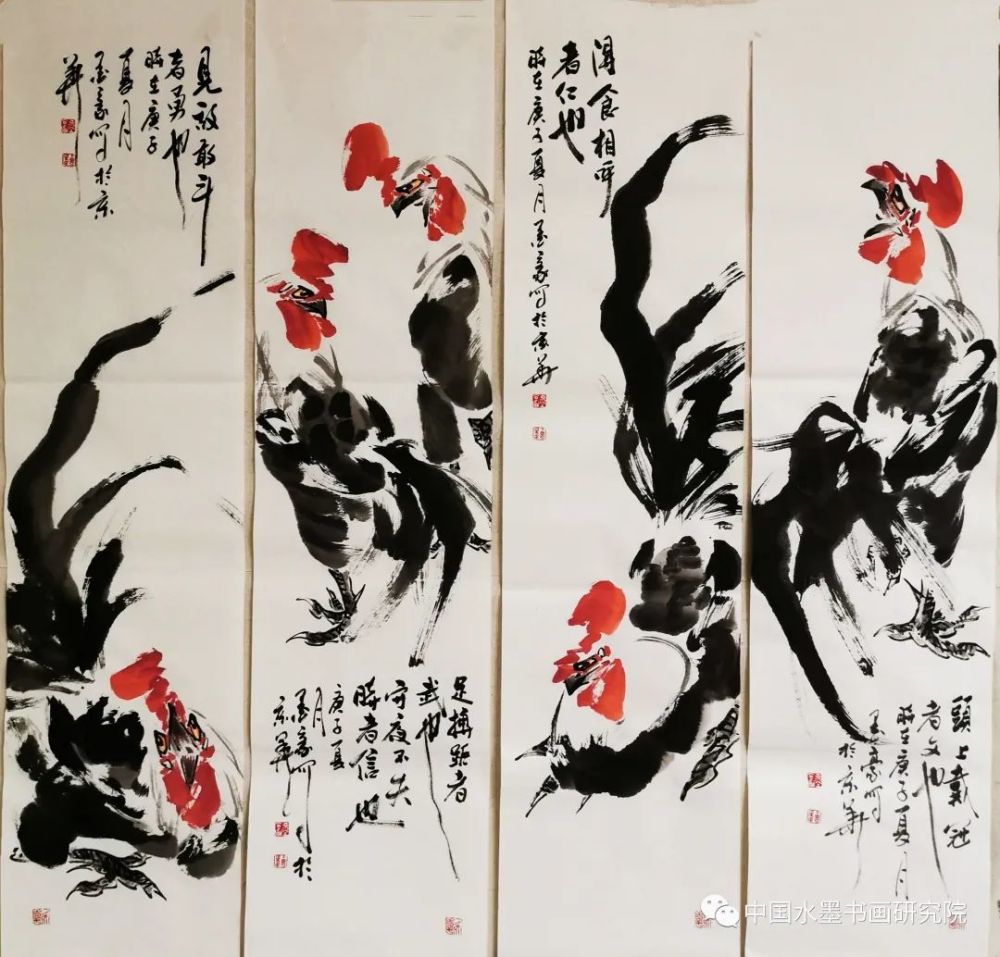 頭上戴冠
者文也
時在庚子夏月
墨豪写
於京華
得食相呼
者仁也
時在庚子夏月墨豪写於京華
足搏距者
武也
守夜不失
時者信也
庚子夏
月
墨豪写於
京華
見敌敢斗
者勇也
時在庚子
夏月
墨豪写於京
華
中国水墨书画研究院